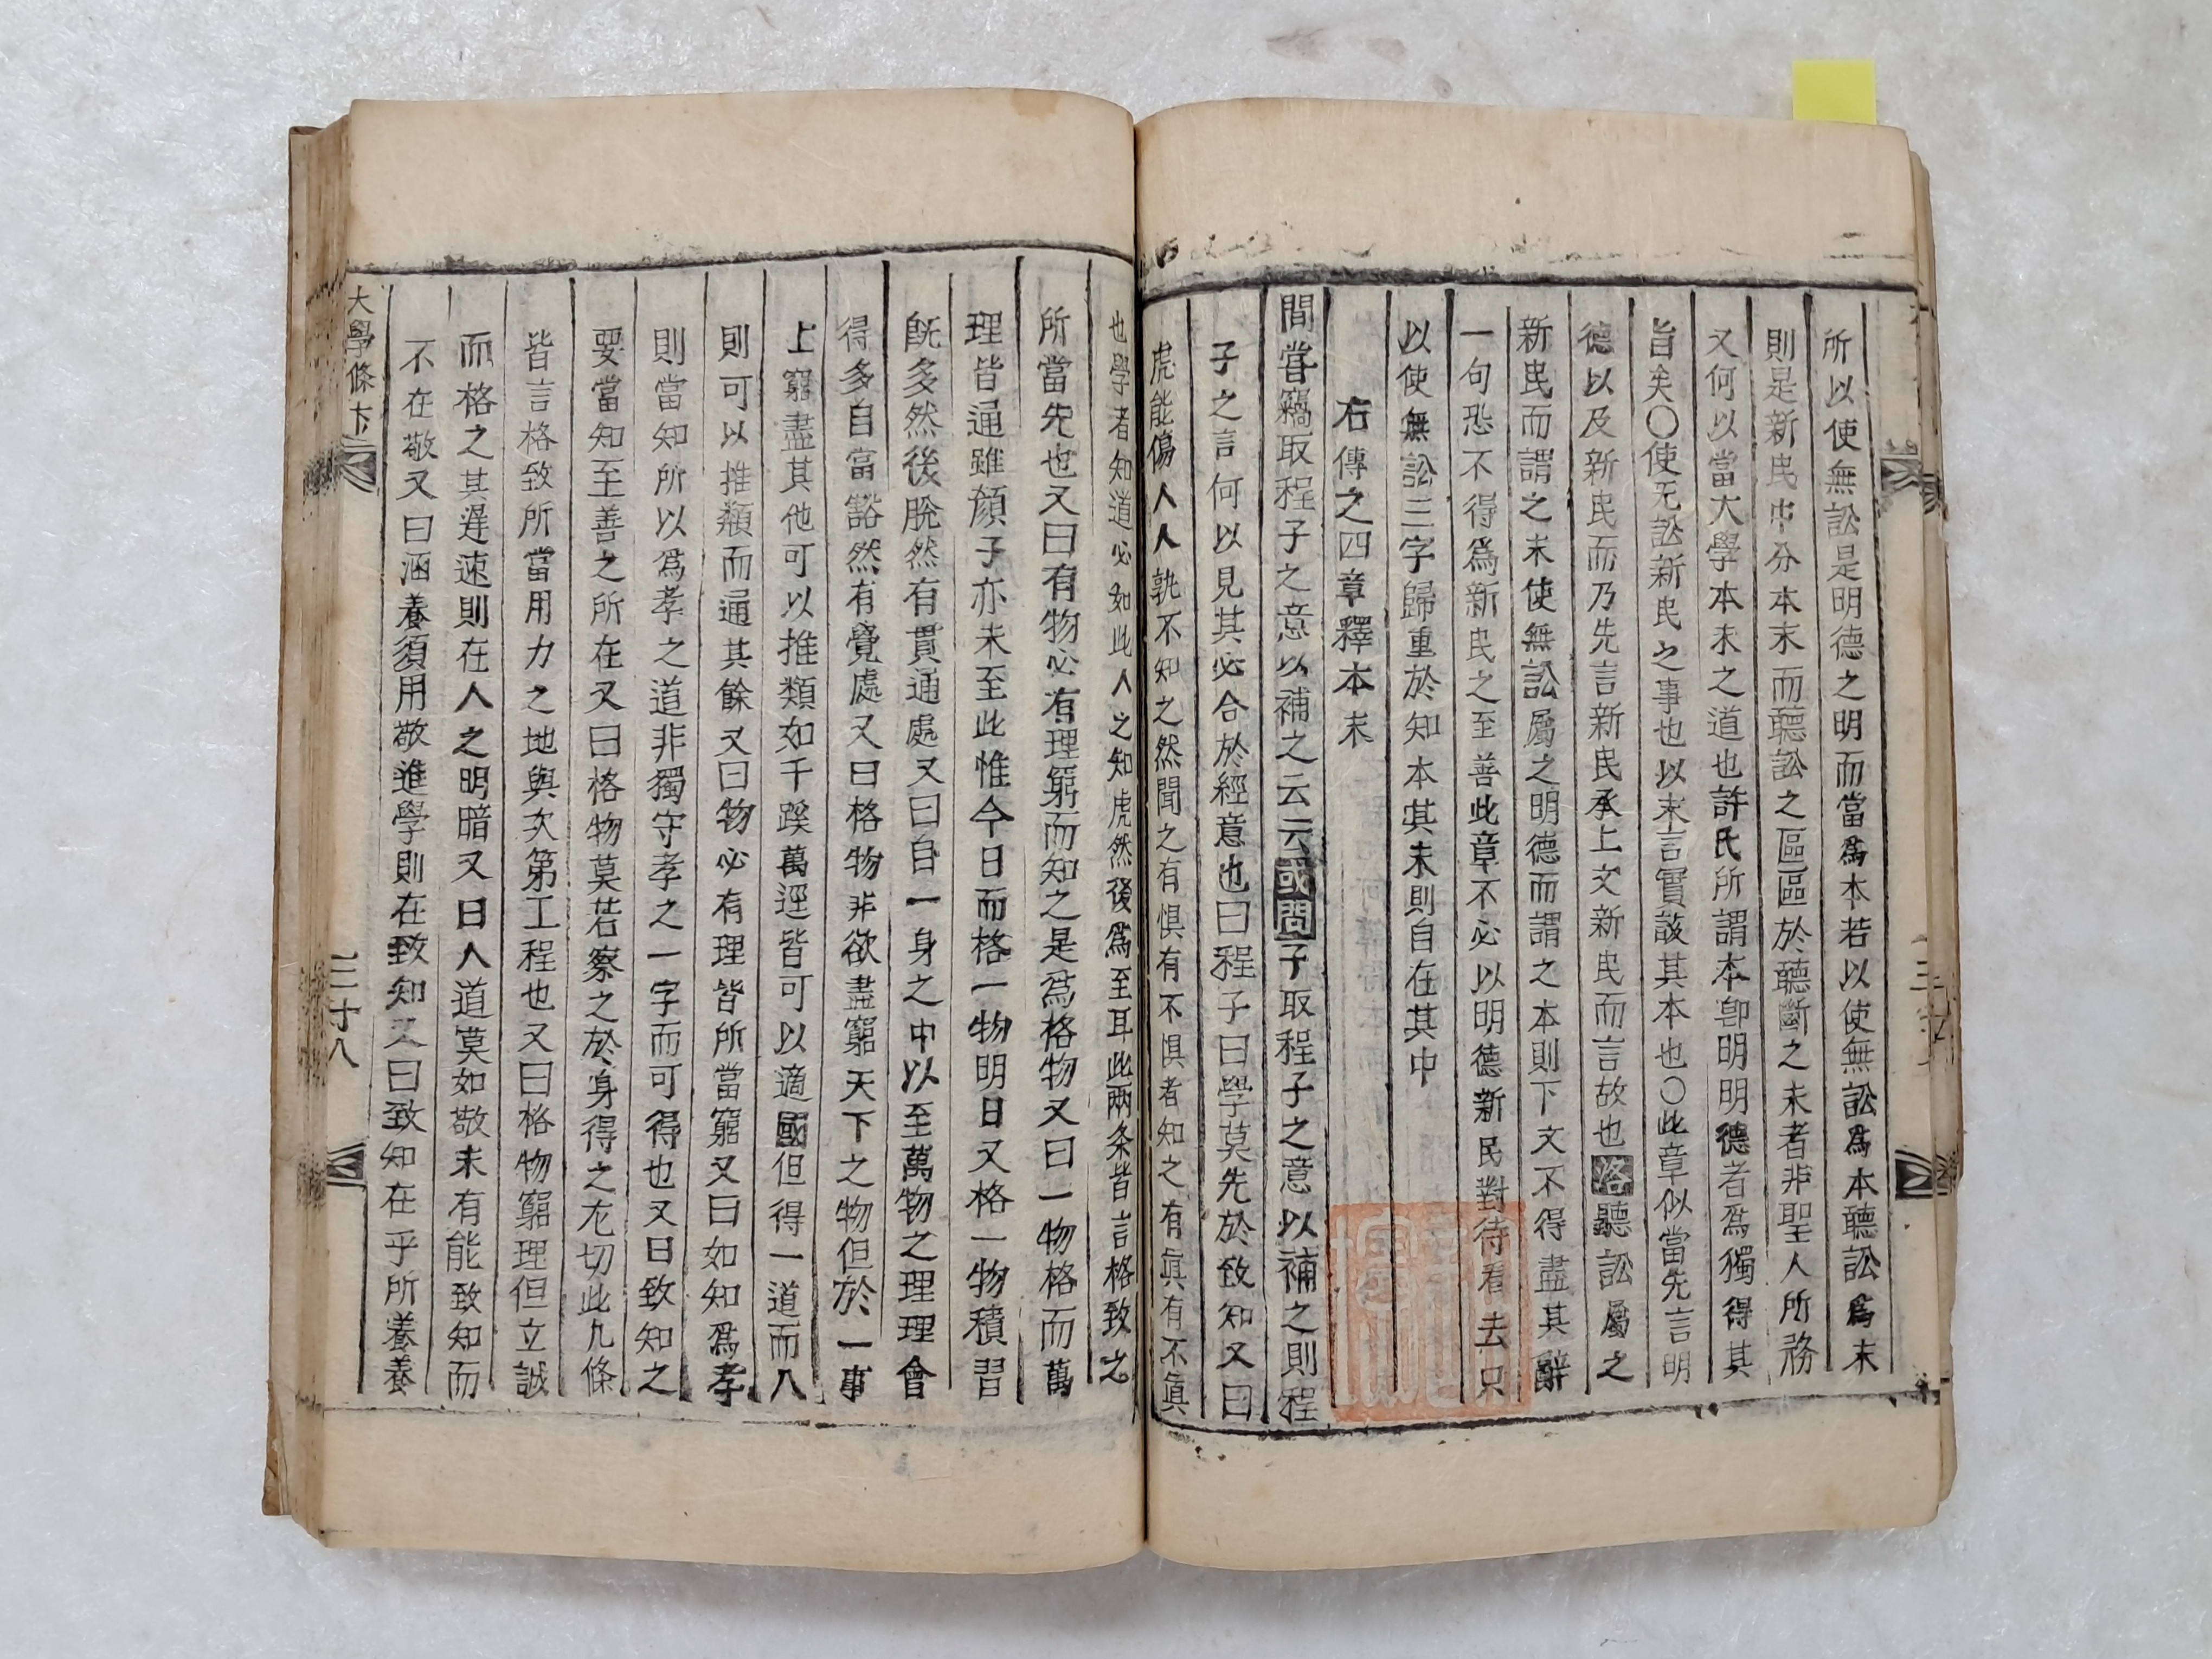 所以使無訟是明德之明而當爲本若以使無訟爲本聽訟爲末
則是新民中分本末而聽訟之區區於聽斷之末者非聖人所務
又何以當大學本末之道也許氏所謂本卽明明德者爲獨得其
旨矣〇使无訟新民之事也以末言實該其本也〇此章似當先言明
德以及新民而乃先言新民承上文新民而言故也洛聽訟屬之
新民而謂之末使無訟屬之明德而謂之本則下文不得盡其辭
一句恐不得爲新民之至善此章不必以明德新民對待看去只
以使無訟三字歸重於知本其末則自在其中
右傳之四章釋本末
間甞竊取程子之意以補之云云或問子取程子之意以補之則程
子之言何以見其必合於經意也曰程子曰學莫先於致知又曰
虎能傷人人孰不知之然聞之有惧有不惧者知之有眞有不眞
也學者知道必如此人之知虎然後爲至耳此兩条皆言格致之
所當先也又曰有物必有理窮而知之是爲格物又曰一物格而萬
理皆通雖顔子亦未至此惟今日而格一物明日又格一物積習
旣多然後脫然有貫通處又曰自一身之中以至萬物之理理會
得多自當豁然有覺處又曰格物非欲盡窮天下之物但於一事
上窮盡其他可以推類如千蹊萬逕皆可以適國但得一道而入
則可以推類而通其餘又曰物必有理皆所當窮又曰如知爲孝
則當知所以爲孝之道非獨守孝之一字而可得也又曰致知之
要當知至善之所在又曰格物莫若察之於身得之尤切此九條
皆言格致所當用力之地與次第工程也又曰格物窮理但立誠
而格之其遲速則在人之明暗又曰人道莫如敬未有能致知而
不在敬又曰涵養須用敬進學則在致知又曰致知在乎所養養
大學條卞
三十八